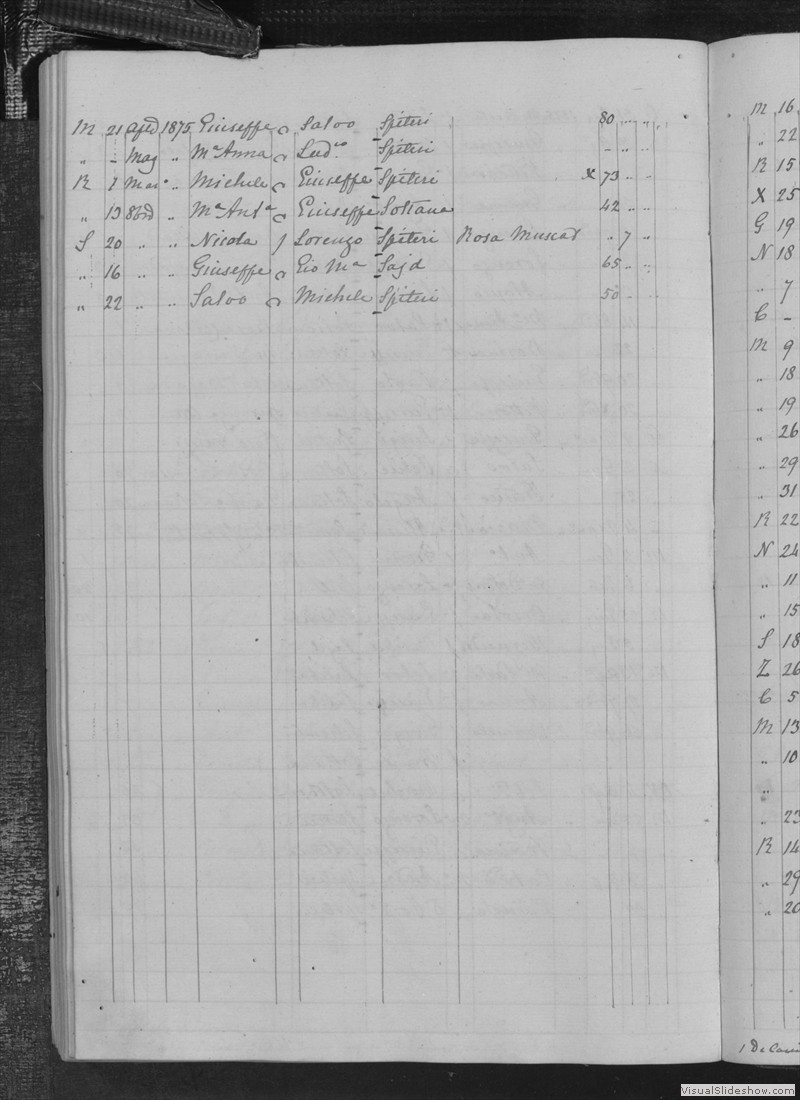 M 21 1875 Giuseppe Salvo Spiteri 80 " "
" - Mag " Mª Anna Spiteri - " "
R 1 " Michele Giuseppe Spiteri X 73 " "
" 19 8bre " Mª Antª Giuseppe Soltana 42 " "
S 20 " " Nicola f Lorenzo Spiteri Rosa Muscat " 7 "
" 16 " " Giuseppe Sajd 65 " "
" 22 " " Salvo Michele Spiteri 50 " "
M 16
" 22
R 15
X 25
G 19
N 18
" 7
C -
M 9
" 18
" 19
" 26
" 29
" 31
R 22
N 24
" 11
" 15
S 18
Z 26
C 5
M 13
" 10
"
" 23
R 14
" 29
" 20
VisualSlideshow.com